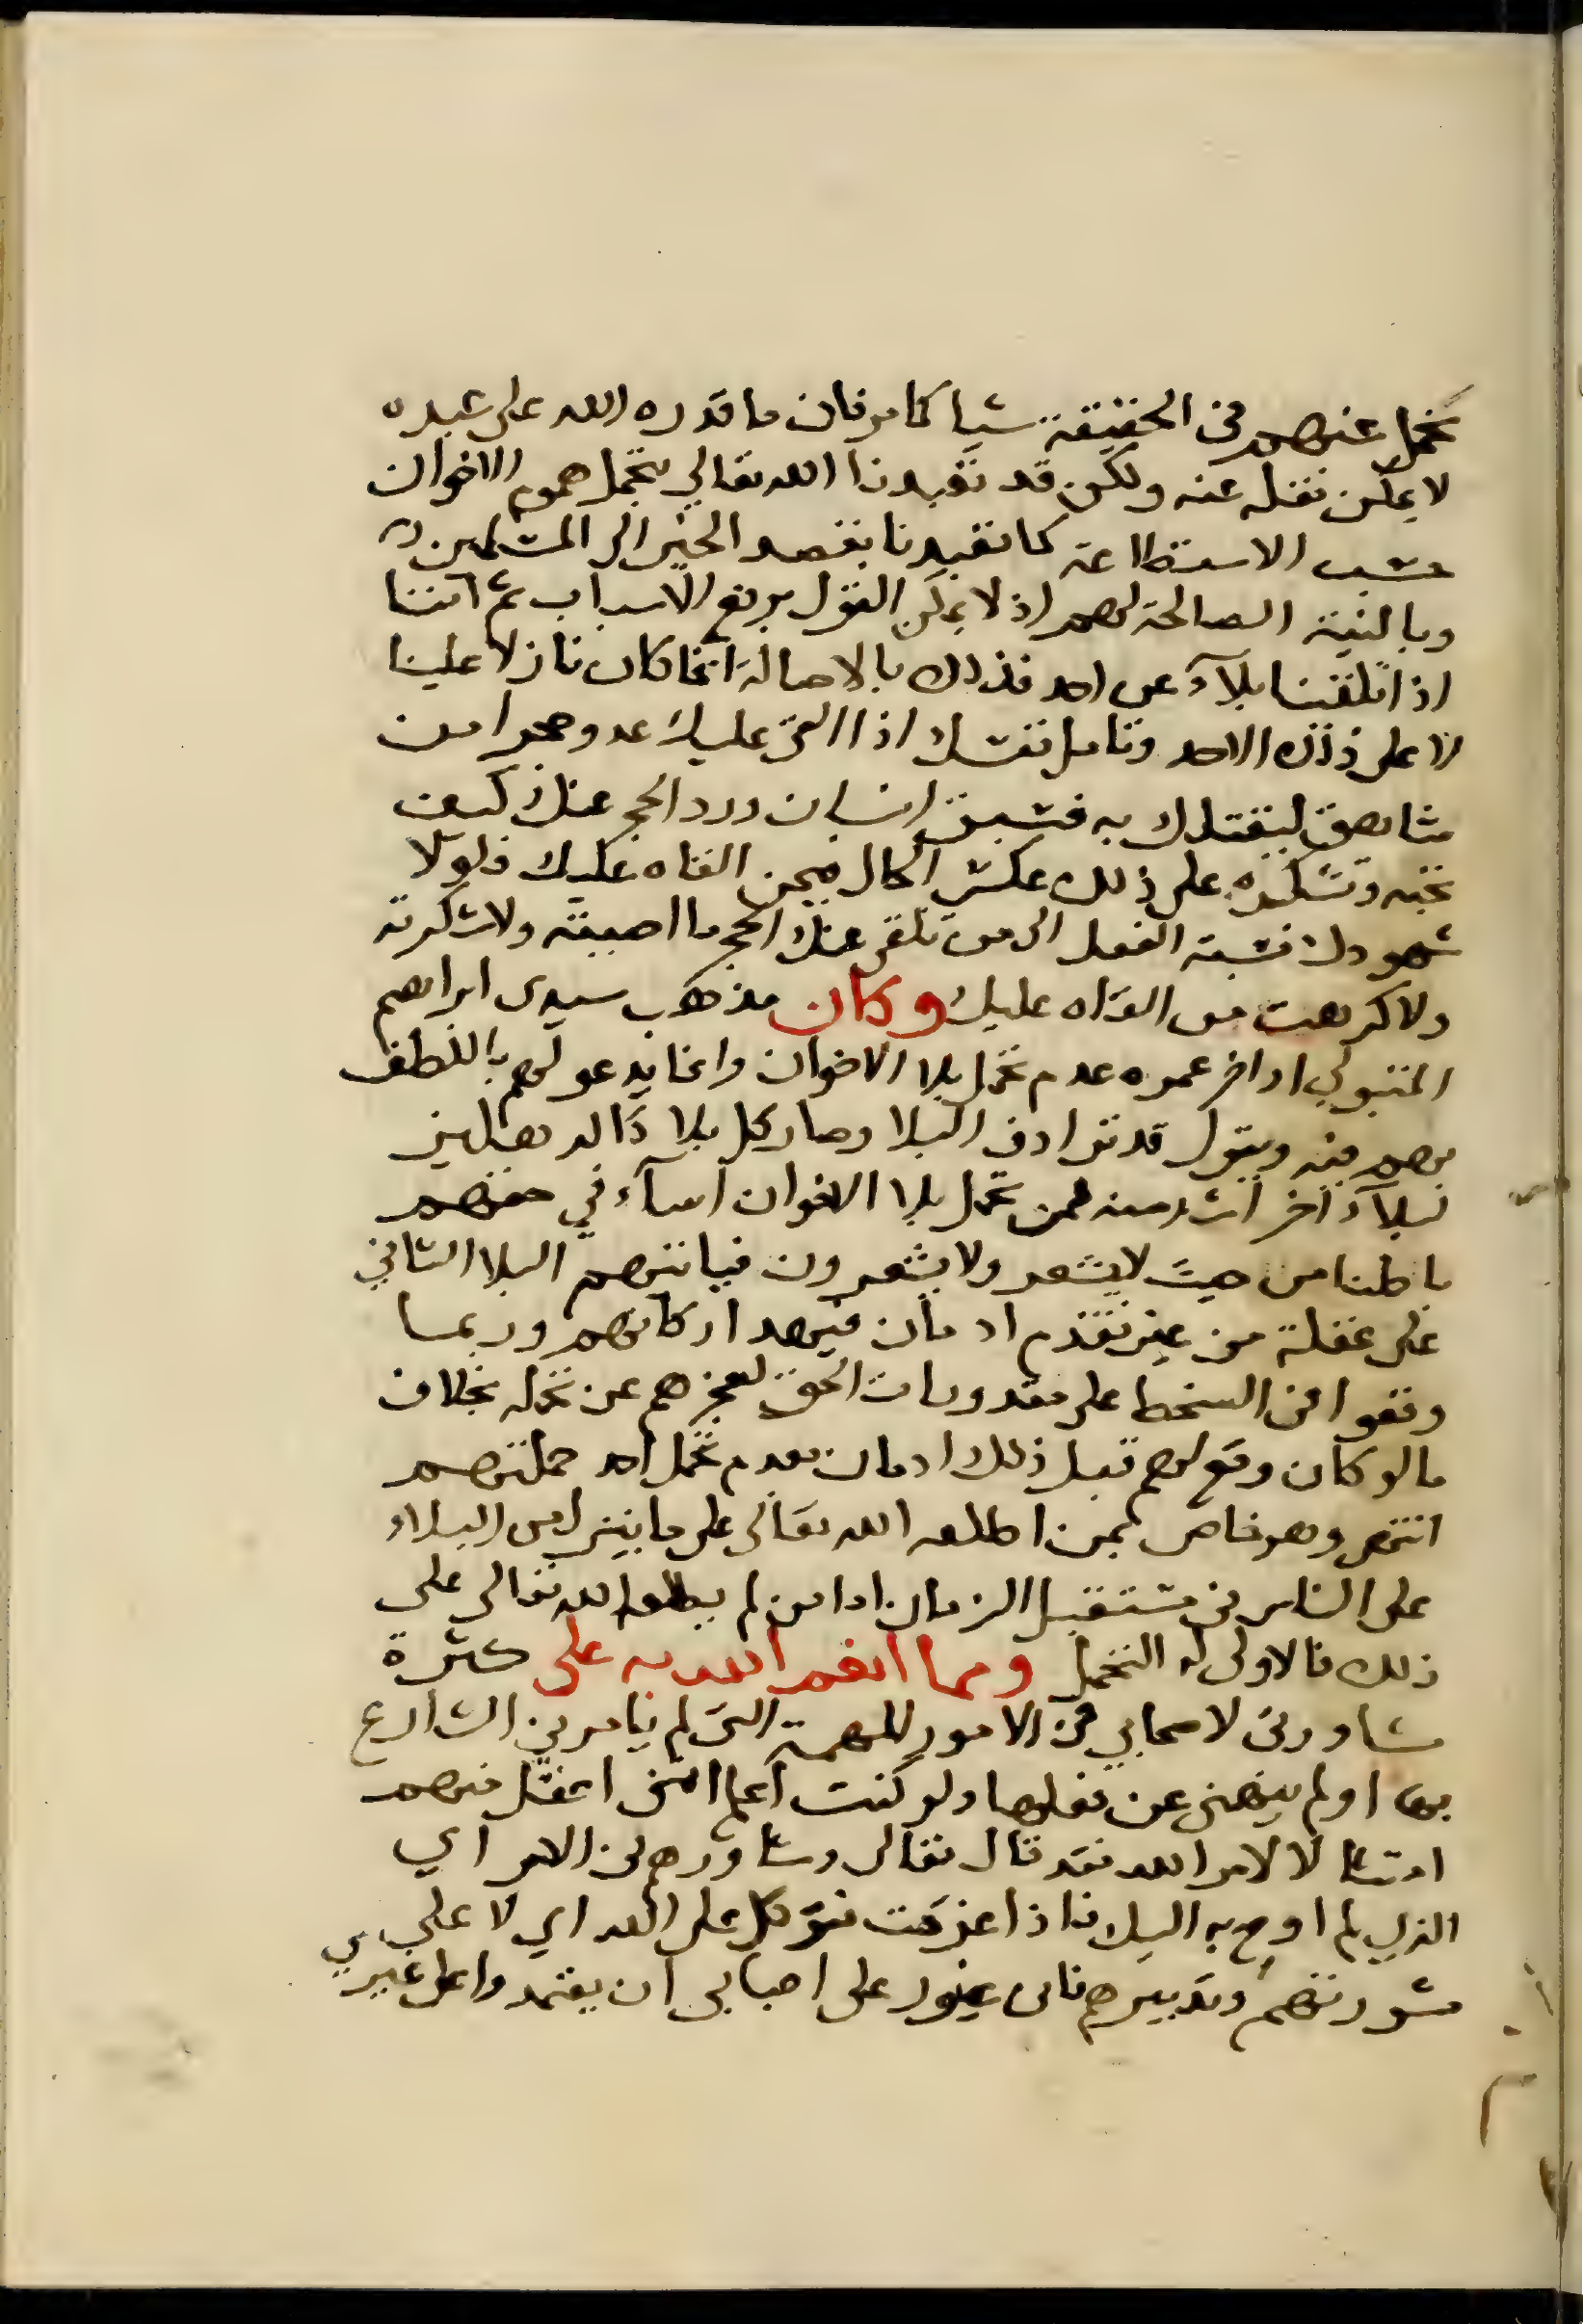 نحمل عنهم في الحقيقة شيا كما مر فان ما قدره الله على عبده
لا يمكن نقله عنه ولكن قد تعبدنا الله تعالي بتحمل هموم الاخوان
حسب الاستطاعة كما تعبدنا بقصد الخير الى المسلمين
وبالنية الصالحة لهم اذ لا يمكن القول برفع الاسباب ثم اننا
اذا تلقينا بلاء عن احد فذلك بالاصالة انما كان نازلا علينا
لا على ذلك الاحد وتامل نفسك اذا القى عليك عدو حجرا من
شاهق ليقتلك به فسبق انسان ورد الحجر عنك كيف
تحبه وتشكره على ذلك عكس الحال فيمن القاه عليك فلولا
شهودك نسبة الفعل الى من تلقى عنك الحجر ما احببته ولا شكرته
ولا كرهت من القاه عليك وكان مذهب سيدى ابراهيم
المتبولي اواخر عمره عدم تحمل بلا الاخوان وانما يدعو لهم باللطف
بهم فيه ويقول قد ترادف البلا وصار كل بلا كالدهليز
لبلاء اخر اشد منه فمن تحمل بلا الاخوان اساء في حقهم
باطنا من حيث لا يشعر ولا يشعرون فياتيهم البلا الثاني
على غفلة من غير تقدم ادمان فيهد اركانهم وربما
وقعوا في السخط على مقدورات الحق لعجزهم عن تحمله بخلاف
ما لو كان وقع لهم قبل ذلك ادمان بعدم تحمل احد حملتهم
انتهى وهو خاص بمن اطلعه الله تعالى على ما ينزل من البلاء
على الناس في مستقبل الزمان اما من لم يطلعه الله تعالى على
ذلك فالاولى له التحمل ومما انعم الله به على كثرة
مشاورتى لاصحابي في الامور المهمة التى لم يامرني الشارع
بها او لم ينهنى عن فعلها ولو كنت اعلم اننى اعقل منهم
امتثالا لامر الله فقد قال تعالى وشاورهم فى الامر اي
الذي لم اوح به اليك فاذا عزمت فتوكل على الله اي لا على
مشورتهم وتدبيرهم فانى غيور على احبابى ان يعتمدوا على غيري